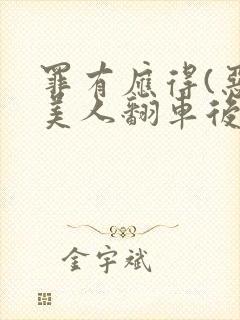 罪有应得(恶
美人翻車後
金宇斌